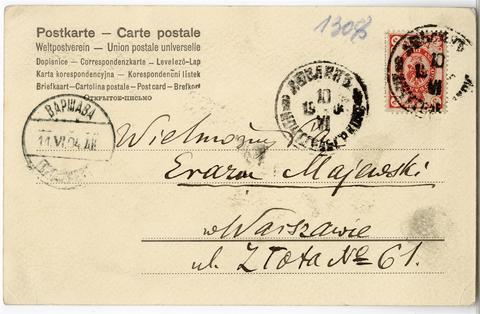 Postkarte — Carte postale
Weltpostverein — Union postale universelle
Dopisnice — Correspondenzkarte — Levelező-Lap
Karta korespondencyjna — Korespondenční listek
Briefkart — Cartolina postale — Post card — Brefkort
Открытое-письмо
1308
ВАРШАВА
11.VI.04
10
VI
10
VI
Wielmożny
Erazm Majewski
w Warszawie
ul. Złota No 61.